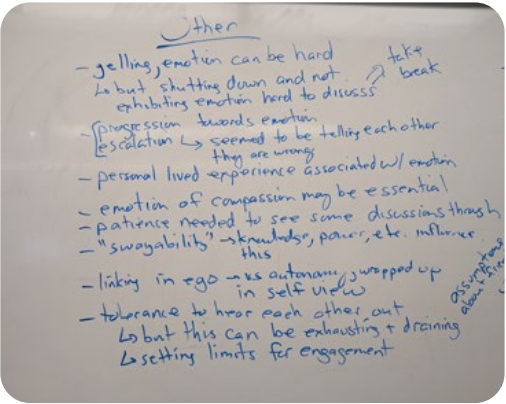 Other
- yelling, emotion can be hard
↳ but shutting down and not
exhibiting emotion hard to discuss
→ take
break
- [progression towards emotion
escalation ↳ seemed to be telling each other
they are wrong
- personal lived experience associated w/ emotion
- emotion of compassion may be essential
- patience needed to see some discussions through
- "swayability" → knowledge, power, etc. influence
this
- linking in ego → vs autonomy, wrapped up
in self view
- tolerance to hear each other out
↳ but this can be exhausting + draining
↳ setting limits for engagement
about